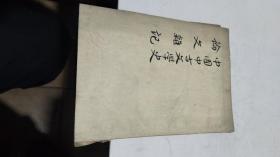 中国中古文学史
论文杂记